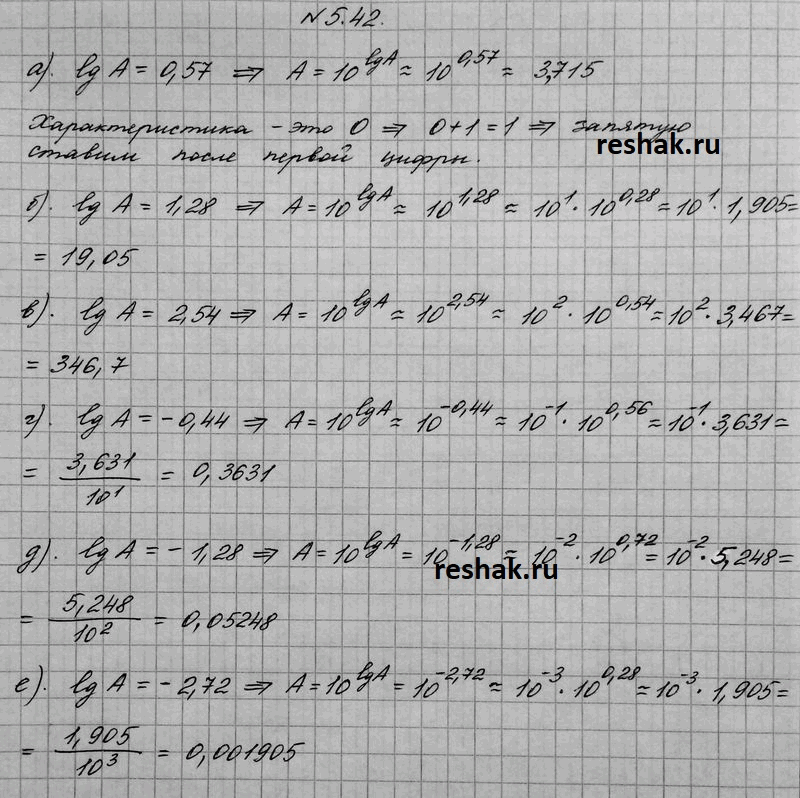 № 5.42.
а). lg A = 0,57 ⇒ A = 10^lgA ≈ 10^0,57 ≈ 3,715
Характеристика - это 0 ⇒ 0+1=1 ⇒ запятую
ставим после первой цифры.
reshak.ru
б). lg A = 1,28 ⇒ A = 10^lgA ≈ 10^1,28 ≈ 10^1 · 10^0,28 = 10^1 · 1,905 =
= 19,05
в). lg A = 2,54 ⇒ A = 10^lgA ≈ 10^2,54 ≈ 10^2 · 10^0,54 = 10^2 · 3,467 =
= 346,7
г). lg A = -0,44 ⇒ A = 10^lgA ≈ 10^-0,44 ≈ 10^-1 · 10^0,56 = 10^-1 · 3,631 =
= 3,631/10^1 = 0,3631
д). lg A = -1,28 ⇒ A = 10^lgA = 10^-1,28 ≈ 10^-2 · 10^0,72 = 10^-2 · 5,248 =
reshak.ru
= 5,248/10^2 = 0,05248
е). lg A = -2,72 ⇒ A = 10^lgA = 10^-2,72 ≈ 10^-3 · 10^0,28 ≈ 10^-3 · 1,905 =
= 1,905/10^3 = 0,001905